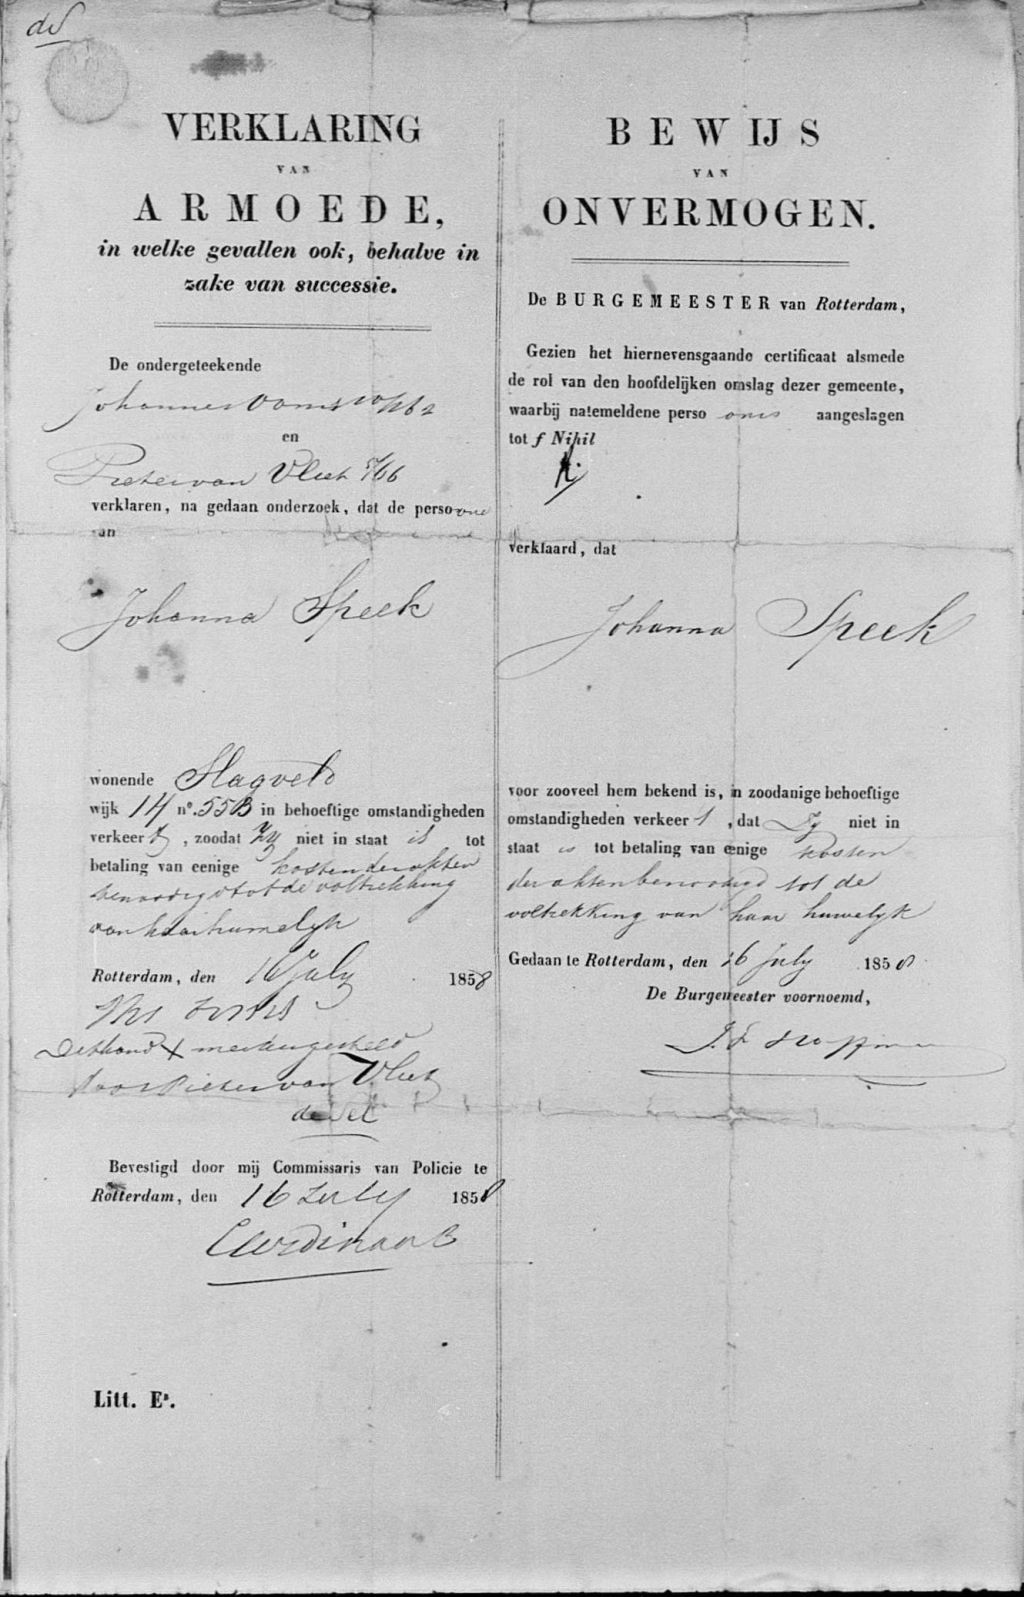 VERKLARING
VAN
ARMOEDE,
in welke gevallen ook, behalve in
zake van successie.
De ondergeteekende
Johannes
en
Pieter van Vliet
verklaren, na gedaan onderzoek, dat de persoone
van
Johanna Speek
wonende Slagveld
wijk 14 no. 55B in behoeftige omstandigheden
verkeert, zoodat Zy niet in staat is tot
betaling van eenige kosten der akten
benoodigd tot de voltrekking
van haar huwelijk
Rotterdam, den 16 July 1858
Dit hand X merk gesteld
door Pieter van Vliet
Bevestigd door mij Commissaris van Policie te
Rotterdam, den 16 July 1858
Litt. Ea.
BEWIJS
VAN
ONVERMOGEN.
De BURGEMEESTER van Rotterdam,
Gezien het hiernevensgaande certificaat alsmede
de rol van den hoofdelijken omslag dezer gemeente,
waarbij natemeldene perso ons aangeslagen
tot f Nihil
verklaard, dat
Johanna Speek
voor zooveel hem bekend is, in zoodanige behoeftige
omstandigheden verkeert, dat Zy niet in
staat is tot betaling van eenige kosten
der akten benoodigd tot de
voltrekking van haar huwelyk
Gedaan te Rotterdam, den 16 July 1858
De Burgemeester voornoemd,
J. F. Hoffman